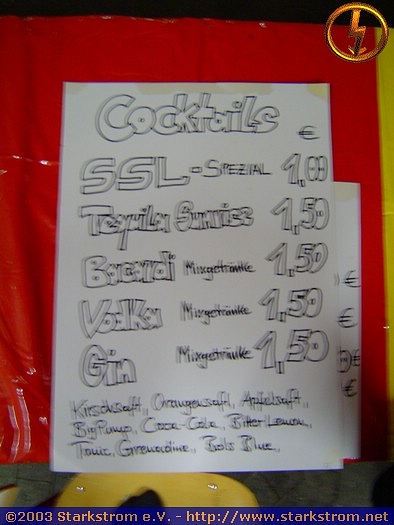 Cocktails
€
SSL - SPEZIAL 1,00
Tequila Sunrise 1,50
Bacardi Mixgetränke 1,50
Vodka Mixgetränke 1,50
Gin Mixgetränke 1,50
Kirschsaft, Orangensaft, Apfelsaft,
BigPump, Coca-Cola, Bitter Lemon,
Tonic, Grenadine, Bols Blue,
€
€
€
€
©2003 Starkstrom e.V. - http://www.starkstrom.net